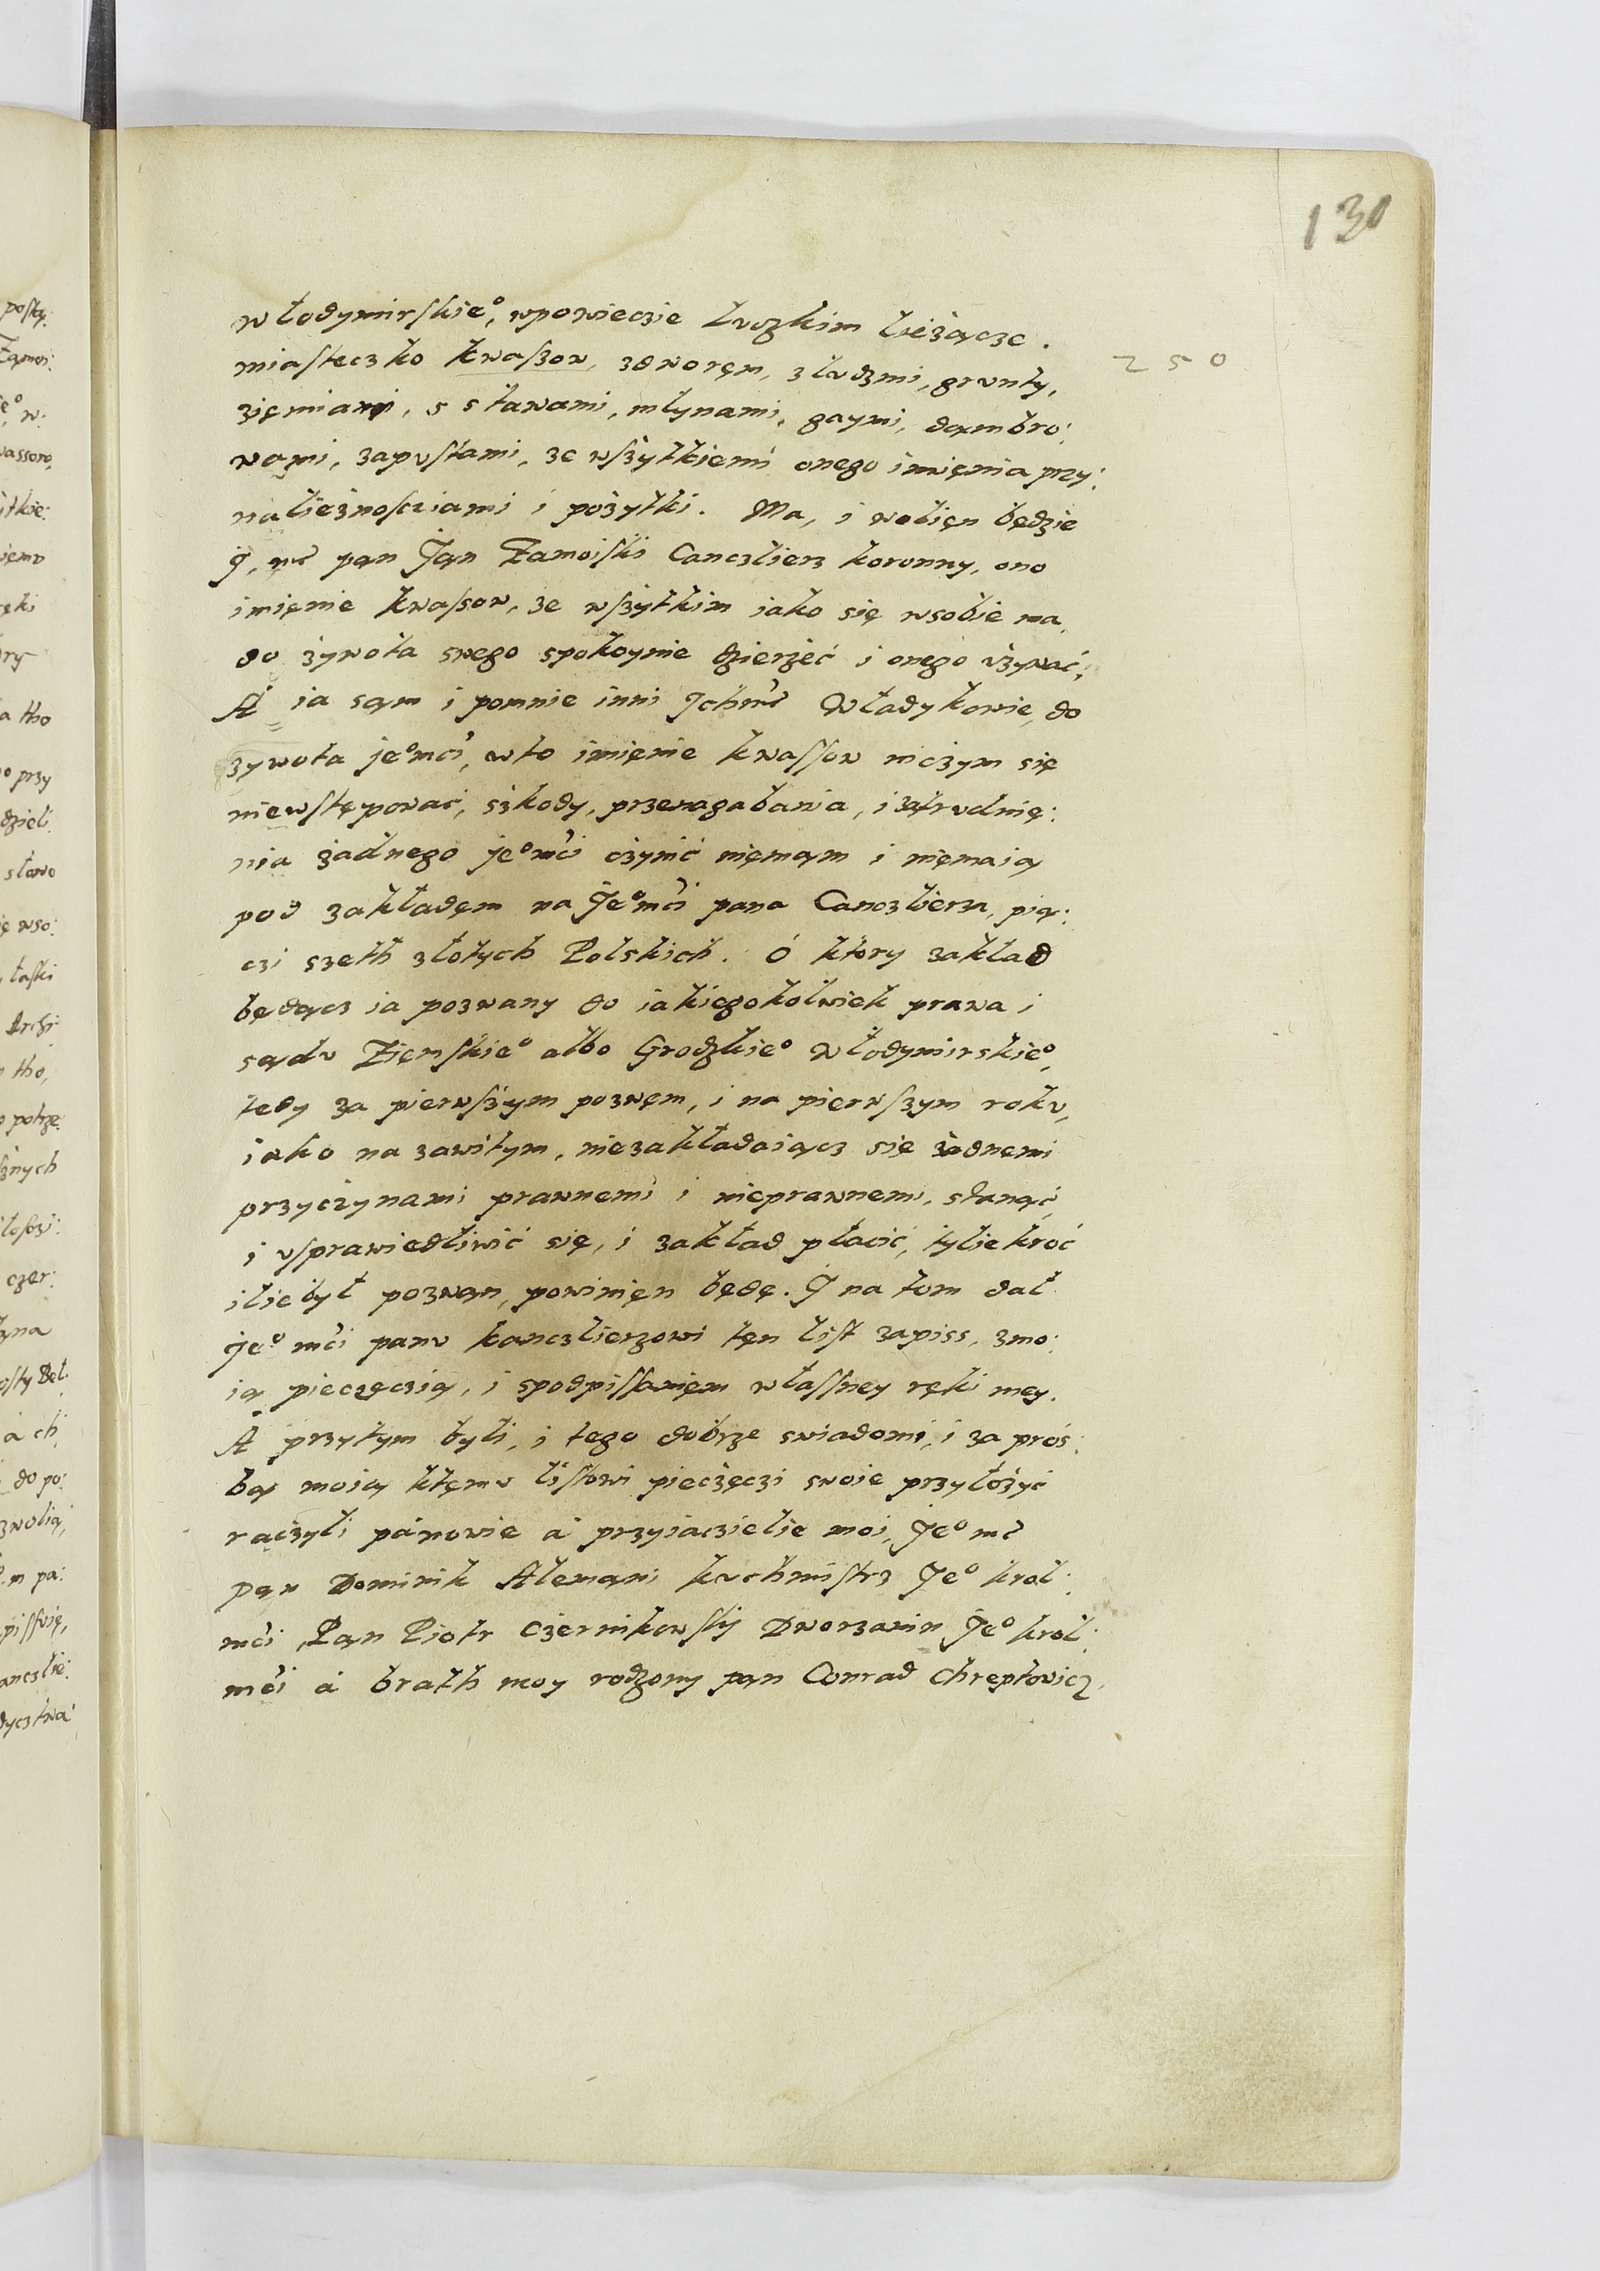 130
250
włodymirskie°, wpowieczie Łuczkim lieżącze.
miasteczko kwaszow, zdworęm, zludzmi, grunty,
zięmiami, s stawami, młynami, gaymi, dąmbro:
wami, zapustami, ze wszytkiemi onego imięnia przy:
należnościami i pożytki. Ma, i wolięn będzie
J, mć pąn Ján Zamoiski Canczlierz koronny, ono
imięnie kwasow, ze wszytkim iako się wsobie ma,
do żywota swego spokoynie dzierżeć i onego używać;
A ia sąm i pomnie inni Ichmć Władykowie, do
żywota je°mći, wto imięnie kwassow niczym się
niewstępować, szkody, przenagabania, i zátrudnię:
nia żadnego je°mći czynić nięmąm i nięmaią
pod zakładęm na Je°mći pana Canczlierza, pią:
czi szeth złotych Polskich. O ktory zakład
będącz ia pozwany do iakiegokolwiek prawa i
sądu Zięmskie° albo Grodzkie° włodymirskie°,
tedy za pierwszym pozwęm, i na pięrwszym roku,
iako na zawitym, niezakładaiącz się żadnemi
przyczynami prawnemi i nieprawnemi, stanąć,
i usprawiedliwić się, i zakład płacić, tyliekroć
ilie był pozwąn, powinięn będę. I na tom dał
Je° mći panu kanczlierzowi tęn list zapiss, zmo:
ią pieczęczią, i spodpissanięm własney ręki mey.
A przytym byli, i tego dobrze swiadomi, i za proś:
bą moią ktęmu listowi pieczęczi swoie przyłożyć
raczyli pánowie á przyiaczielie moi, Je° mć
pąn Dominik Alemąni kuchmistrz Je° krol:
mći, Pąn Piotr Czernikowsky Dworzanin Je° krol:
mći á brath moy rodzony pąn Conrad Chreptowicz,